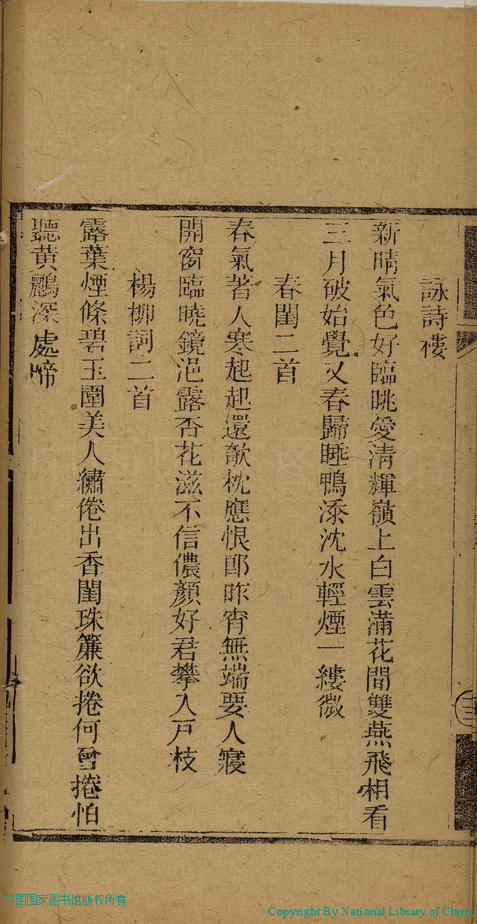 詠詩樓
新晴氣色好臨眺愛清輝嶺上白雲滿花間雙燕飛相看
三月破始覺又春歸睡鴨添沈水輕煙一縷微
春閨二首
春氣著人寒起起還欹枕應恨郎昨宵無端要人寢
開窗臨曉鏡浥露杏花滋不信儂顏好君攀入戸枝
楊柳詞二首
露葉煙條碧玉圍美人繡倦出香閨珠簾欲捲何曾捲怕
聽黃鸝深處啼
中国国家图书馆版权所有
Copyright By National Library of China